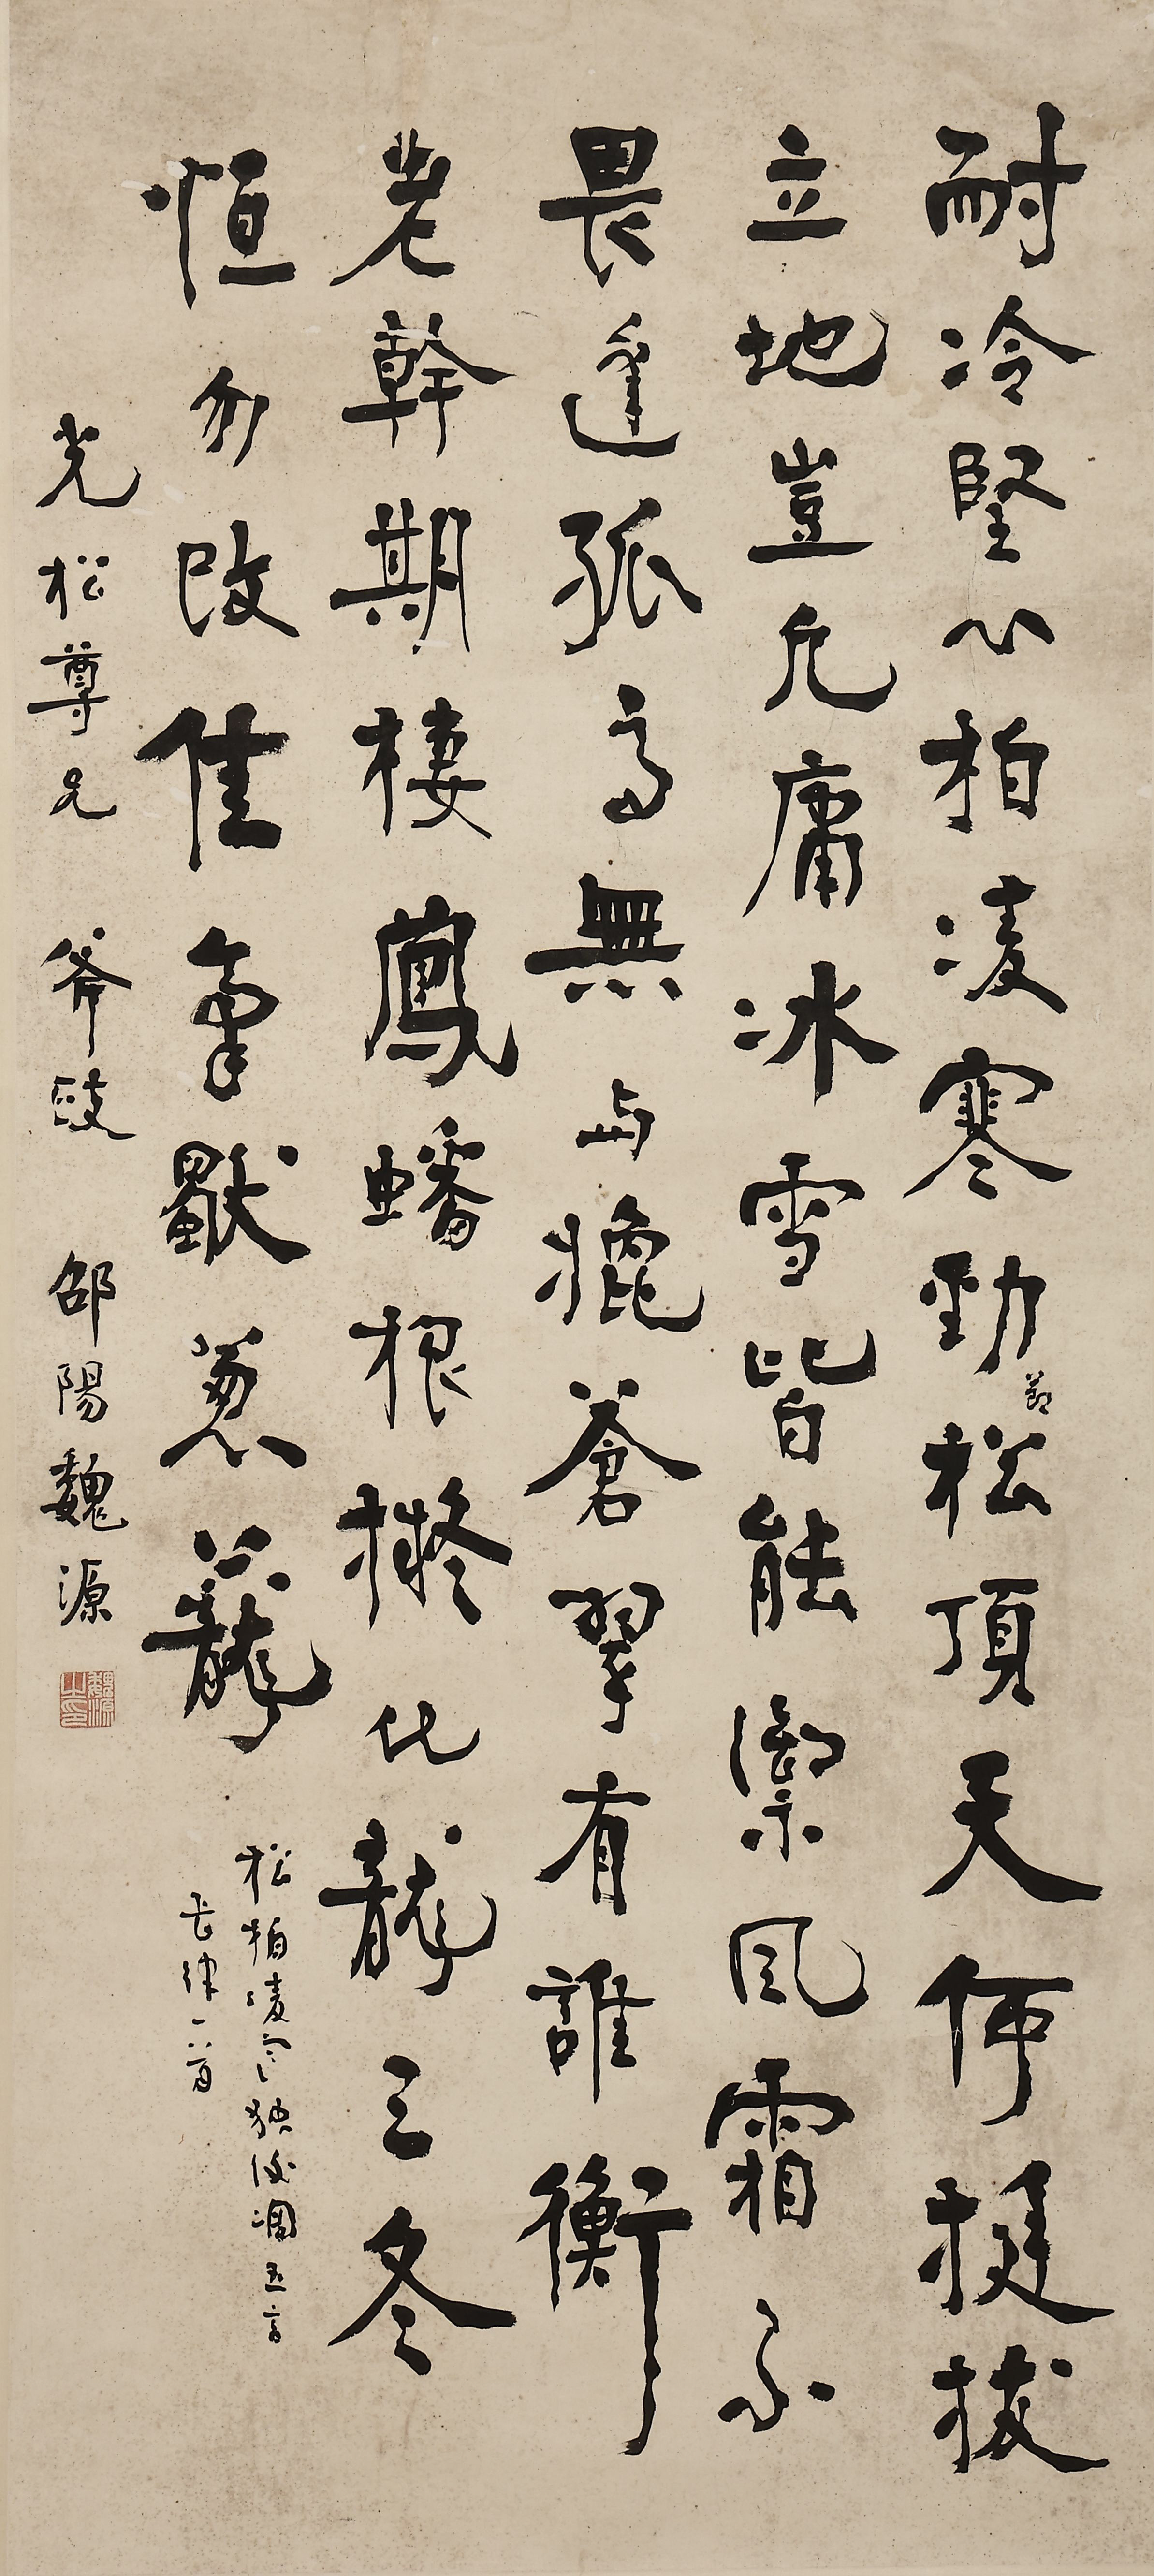 耐冷堅心柏凌寒勁節松頂天何挺拔
立地豈凡庸冰雪皆能禦風霜不
畏逢孤高無与蒼翠有誰衡
老幹期棲鳳蟠根擬化龍三冬
恒勿改佳氣蔥蘢
松柏凌寒獨後凋五言
長律一首
光松尊兄 斧政 邵陽魏源
魏源之印